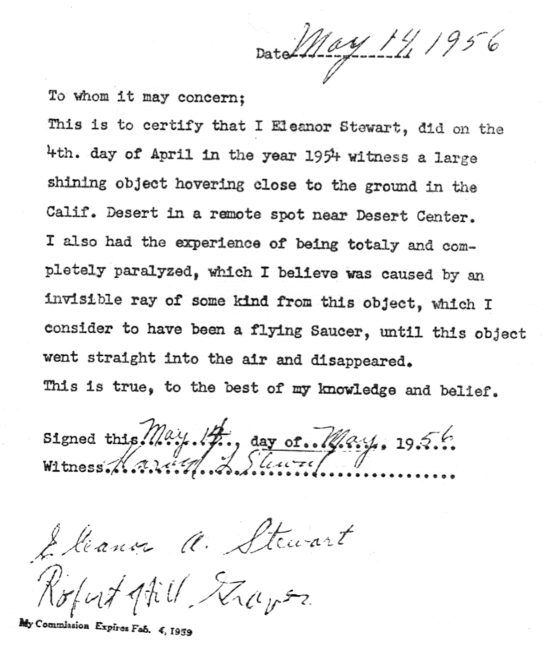 Date May 14, 1956
To whom it may concern;
This is to certify that I Eleanor Stewart, did on the
4th. day of April in the year 1954 witness a large
shining object hovering close to the ground in the
Calif. Desert in a remote spot near Desert Center.
I also had the experience of being totaly and com-
pletely paralyzed, which I believe was caused by an
invisible ray of some kind from this object, which I
consider to have been a flying Saucer, until this object
went straight into the air and disappeared.
This is true, to the best of my knowledge and belief.
Signed this May 14, day of May, 1956
Witness L Stewart
Eleanor A. Stewart
Hill
My Commission Expires Feb. 4, 1959